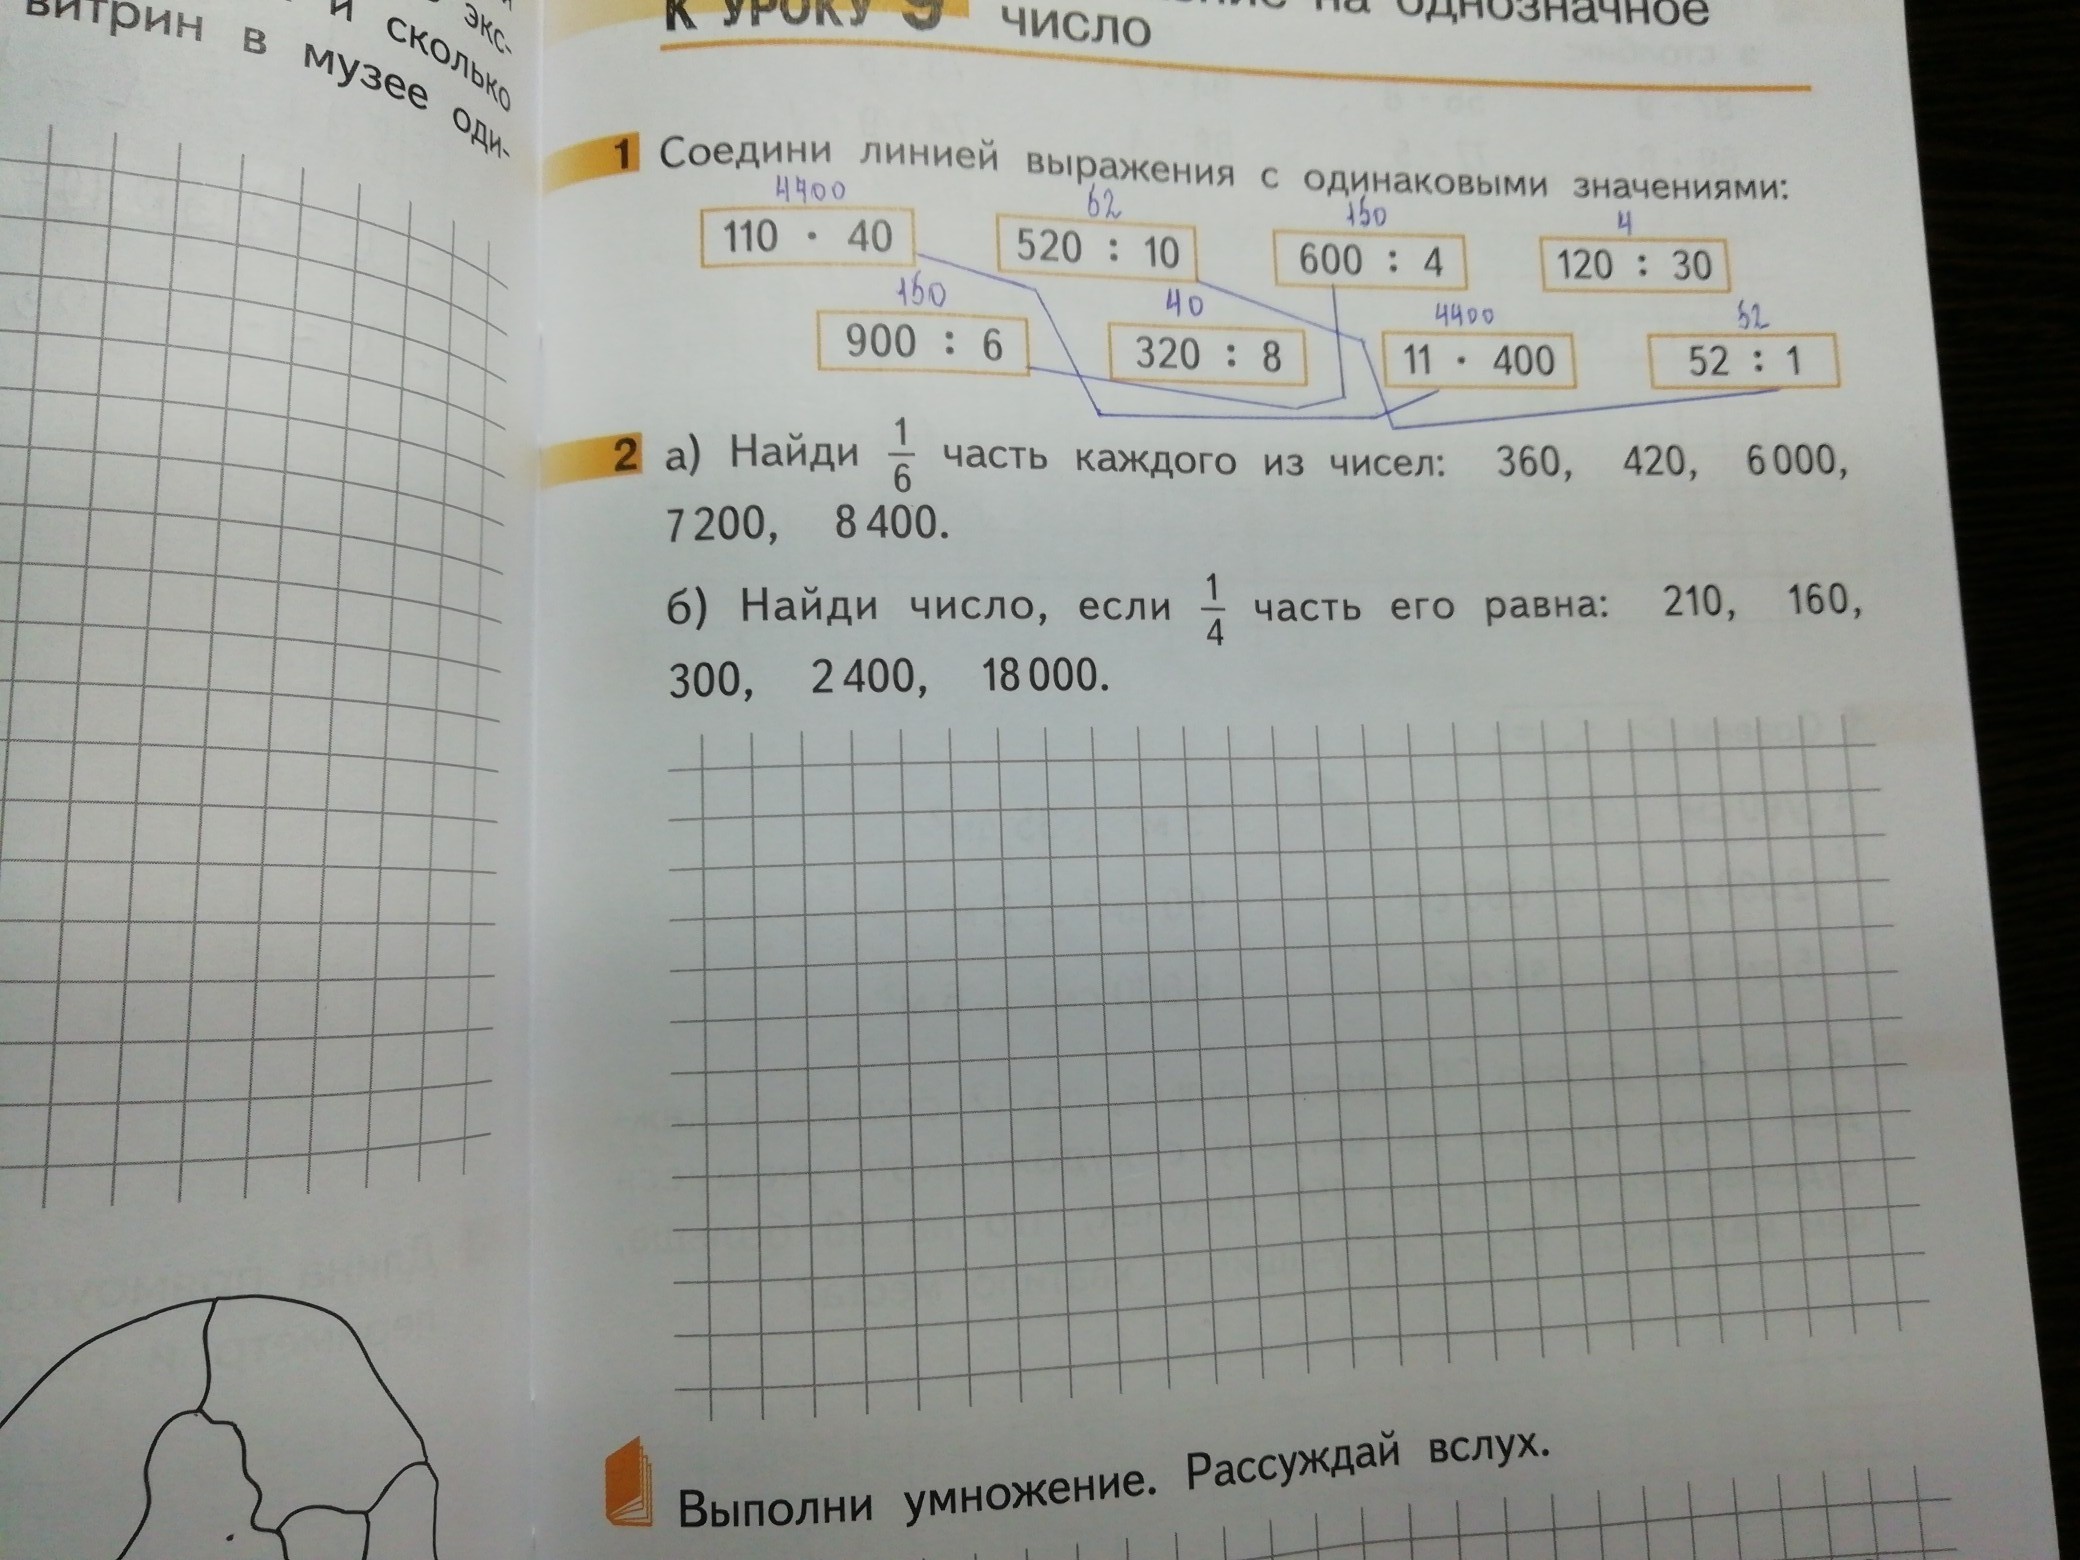 экс-
и сколько
витрин в музее оди-
К УРОКУ 9 на однозначное
число
1 Соедини линией выражения с одинаковыми значениями:
4400 52 150 4
110 · 40 520 : 10 600 : 4 120 : 30
150 40 4400 52
900 : 6 320 : 8 11 · 400 52 : 1
2 а) Найди 1/6 часть каждого из чисел: 360, 420, 6 000,
7 200, 8 400.
б) Найди число, если 1/4 часть его равна: 210, 160,
300, 2 400, 18 000.
Выполни умножение. Рассуждай вслух.